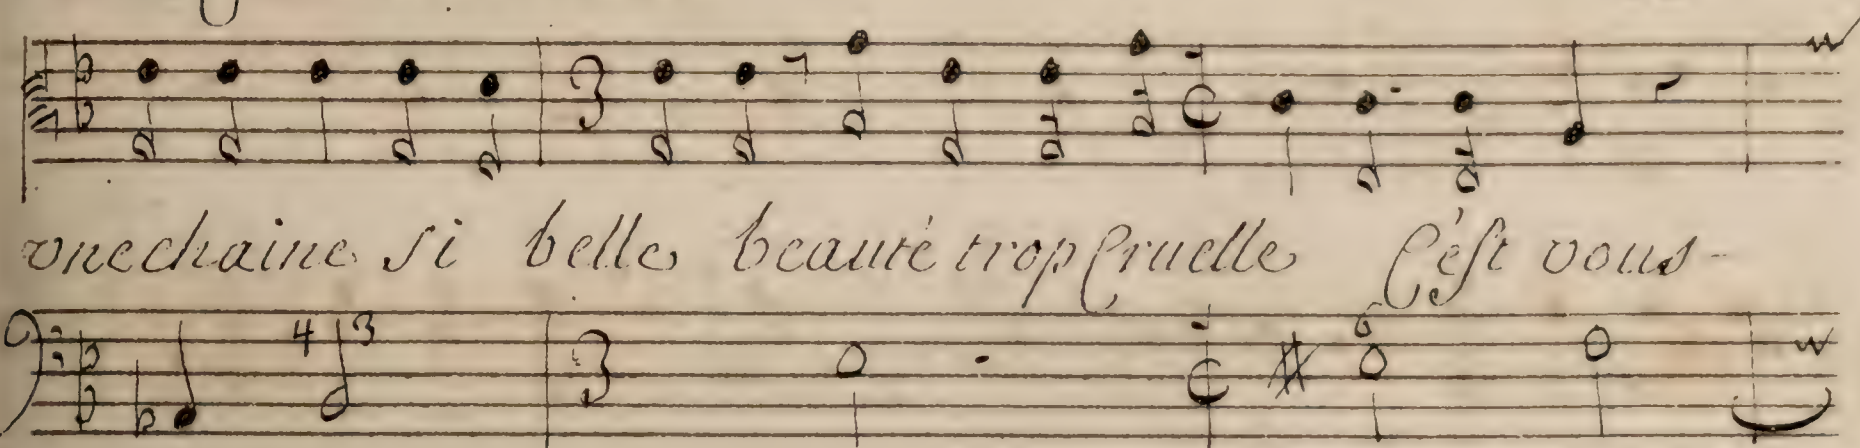 3
vne chaine si belle beauté trop Cruelle C'est vous-
4 3 3 6